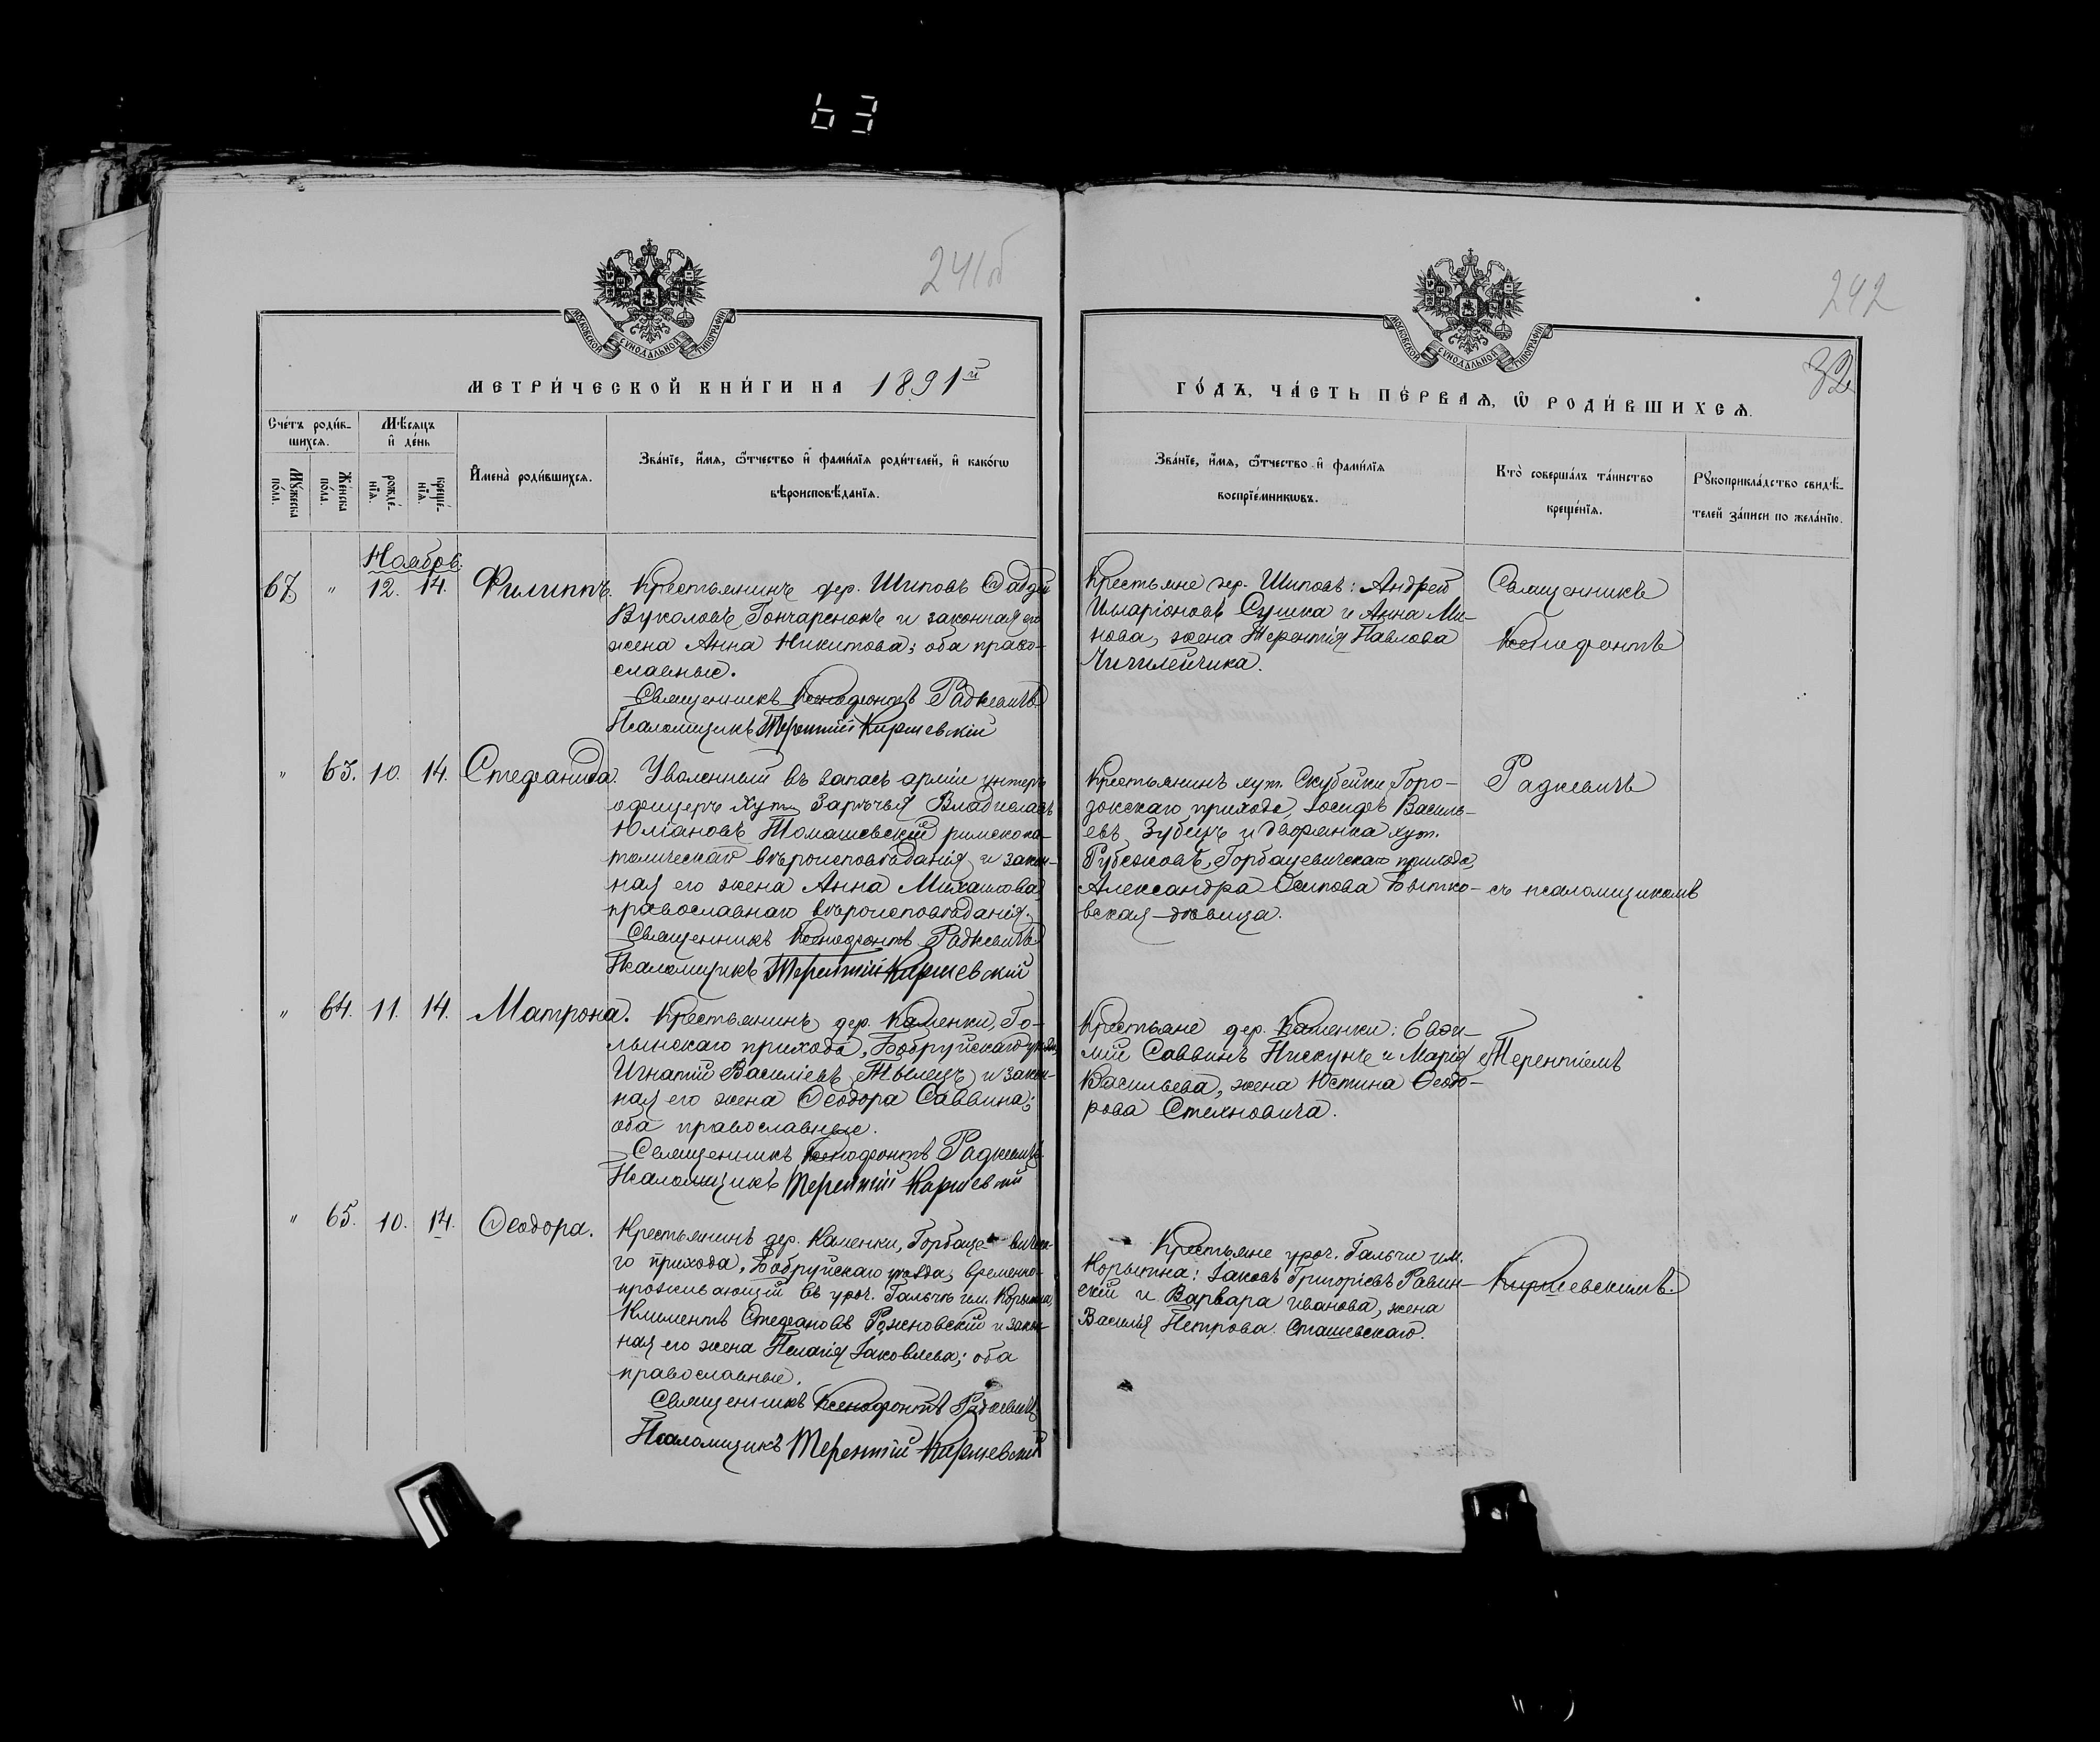 63
241об
242
32
МОСКОВСКОЙ СУНОДАЛЬНОЙ ТИПОГРАФІИ
МОСКОВСКОЙ СУНОДАЛЬНОЙ ТИПОГРАФІИ
МЕТРИ́ЧЕСКОЙ КНИ́ГИ НА 1891й
ГО́ДЪ, ЧА́СТЬ ПЕ́РВАѦ, Ѿ РОДИ́ВШИХСѦ.
Сче́тъ роди́в-
шихсѧ.
Му́жеска по́ла.
Же́нска по́ла.
Мѣ́сѧцъ
и҆ де́нь
рожде́-
нїѧ.
креще́-
нїѧ.
И҆мена̀ роди́вшихсѧ.
Зва́нїе, и҆́мѧ, ѻ҆́тчество и҆ фами́лїѧ роди́телей, и҆ како́гѡ
вѣроисповѣ́данїѧ.
Зва́нїе, и҆́мѧ, ѻ҆́тчество и҆ фами́лїѧ
воспрїе́мникѡвъ.
Кто̀ соверша́лъ та́инство
креще́нїѧ.
Рꙋкоприкла́дство свидѣ́-
телей за́писи по жела́нїю.
Ноябрь.
67 " 12. 14. Филиппъ.
Крестьянинъ дер. Шиповъ Ѳаддей
Вуколовъ Гончаренокъ и законная его
жена Анна Никитова; оба право-
славные.
Священникъ Ксенофонтъ Радкевичъ
Псаломщикъ Терентій Киршевскій
Крестьяне дер. Шиповъ: Андрей
Иларіоновъ Сушка и Анна Ми-
нова, жена Терентія Павлова
Чичилейчика.
Священникъ
Ксенофонтъ
" 63. 10. 14. Стефанида.
Уволенный въ запасъ арміи унтеръ
офицеръ хут. Заречья Владиславъ
Юліановъ Томашевскій римскока-
толическаго вѣроисповѣданія и закон-
ная его жена Анна Михаилова
православнаго вѣроисповѣданія.
Священникъ Ксенофонтъ Радкевичъ
Псаломщикъ Терентій Киршевскій
Крестьянинъ хут. Скубейки Горо-
докскаго прихода, Іосифъ Василь-
евъ Зубецъ и дворянка хут.
Рубежовъ, Горбацевичскаго прихода,
Александра Осипова Бытко-
вская-дѣвица.
Радкевичъ
съ псаломщикомъ
" 64. 11. 14. Матрона.
Крестьянинъ дер. Каменки, Го-
лынскаго прихода, Бобруйскаго уѣзда,
Игнатій Василіевъ Тылецъ и закон-
ная его жена Ѳеодора Саввина;
оба православные.
Священникъ Ксенофонтъ Радкевичъ
Псаломщикъ Терентій Киршевскій
Крестьяне дер. Каменки: Евѳи-
мій Саввинъ Пискунъ и Марія
Васильева, жена Юстина Ѳеодо-
рова Стехновича.
Терентіемъ
" 65. 10. 14. Ѳеодора.
Крестьянинъ дер. Каменки, Горбаце-вичска-
го прихода, Бобруйскаго уѣзда, временно-
проживающій въ уроч. Гальчѣ им. Корытна,
Климентъ Стефановъ Роженовскій и закон-
ная его жена Пелагія Іаковлева; оба
православные.
Священникъ Ксенофонтъ Радкевичъ
Псаломщикъ Терентій Киршевскій
Крестьяне уроч. Гальчи им.
Корытна: Іаковъ Григоріевъ Равин-
скій и Варвара Иванова, жена
Василія Петрова Сташевскаго.
Киршевскимъ.